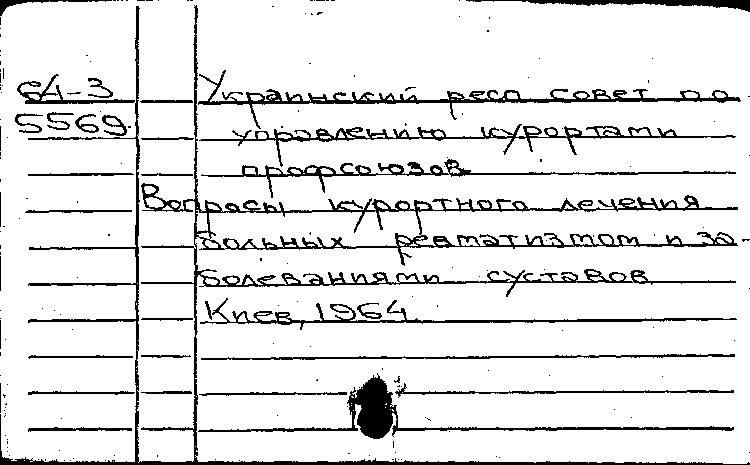 64-3 Украинский респ совет по
5569 управлению курортами
профсоюзов
Вопросы курортного лечения
больных ревматизмом и за-
болеваниями суставов
Киев, 1964.